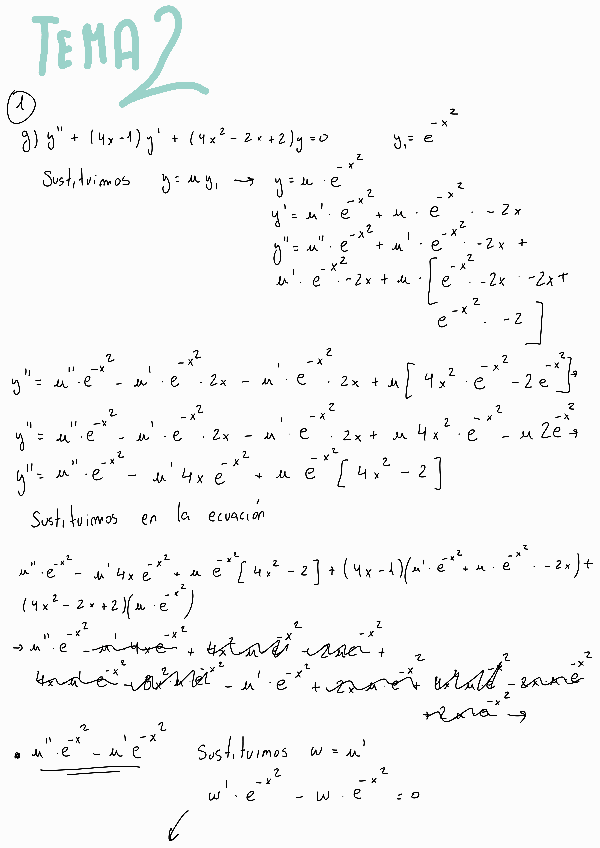 TEMA 2
1
g) y'' + (4x-1) y' + (4x² - 2x + 2) y = 0 y₁ = e^{-x²}
Sustituimos y = u y₁ → y = u · e^{-x²}
y' = u' · e^{-x²} + u · e^{-x²} · -2x
y'' = u'' · e^{-x²} + u' · e^{-x²} · -2x +
u' · e^{-x²} · -2x + u · [ e^{-x²} · -2x · -2x +
e^{-x²} · -2 ]
y'' = u'' · e^{-x²} - u' · e^{-x²} · 2x - u' · e^{-x²} · 2x + u [ 4x² · e^{-x²} - 2 e^{-x²} ] →
y'' = u'' · e^{-x²} - u' · e^{-x²} · 2x - u' · e^{-x²} · 2x + u 4x² · e^{-x²} - u 2e^{-x²} →
y'' = u'' · e^{-x²} - u' 4x e^{-x²} + u e^{-x²} [ 4x² - 2 ]
Sustituimos en la ecuación
u'' · e^{-x²} - u' 4x e^{-x²} + u e^{-x²} [ 4x² - 2 ] + (4x - 1)(u' · e^{-x²} + u · e^{-x²} · -2x) +
(4x² - 2x + 2)(u · e^{-x²})
→ u'' · e^{-x²} - u' 4x e^{-x²} +
- u' · e^{-x²} +
→
• u'' · e^{-x²} - u' e^{-x²} Sustituimos w = u'
w' · e^{-x²} - w · e^{-x²} = 0